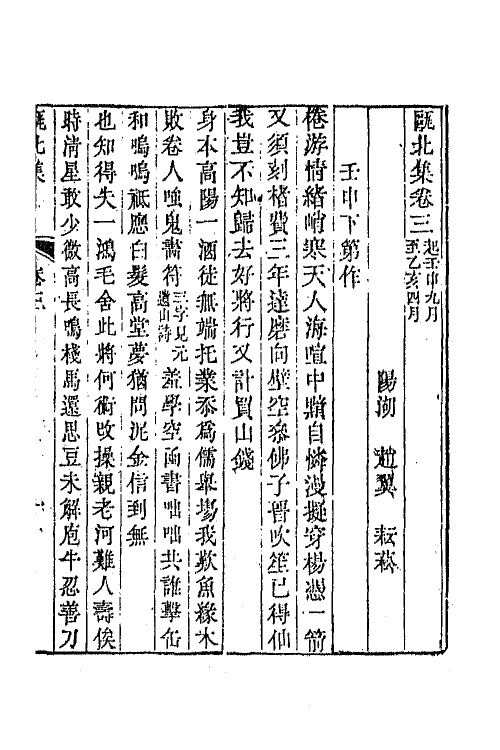 甌北集卷三 起壬申九月至乙亥四月
陽湖 趙翼 耘菘
壬申下第作
倦游情緒峭寒天人海喧中黯自憐漫擬穿楊憑一箭
又須刻楮費三年達磨向壁空參佛子晉吹笙已得仙
我豈不知歸去好將行又計買山錢
身本高陽一酒徒無端托業忝爲儒舉場我歎魚緣木
敗卷人嗤鬼畵符 三字見元遺山詩 羞學空函書咄咄共誰擊缶
和嗚嗚祗應白髮高堂夢猶問泥金信到無
也知得失一鴻毛舍此將何術改操親老河難人壽俟
時淸星敢少微高長鳴棧馬還思豆未解庖牛忍善刀
甌北集 卷三 一